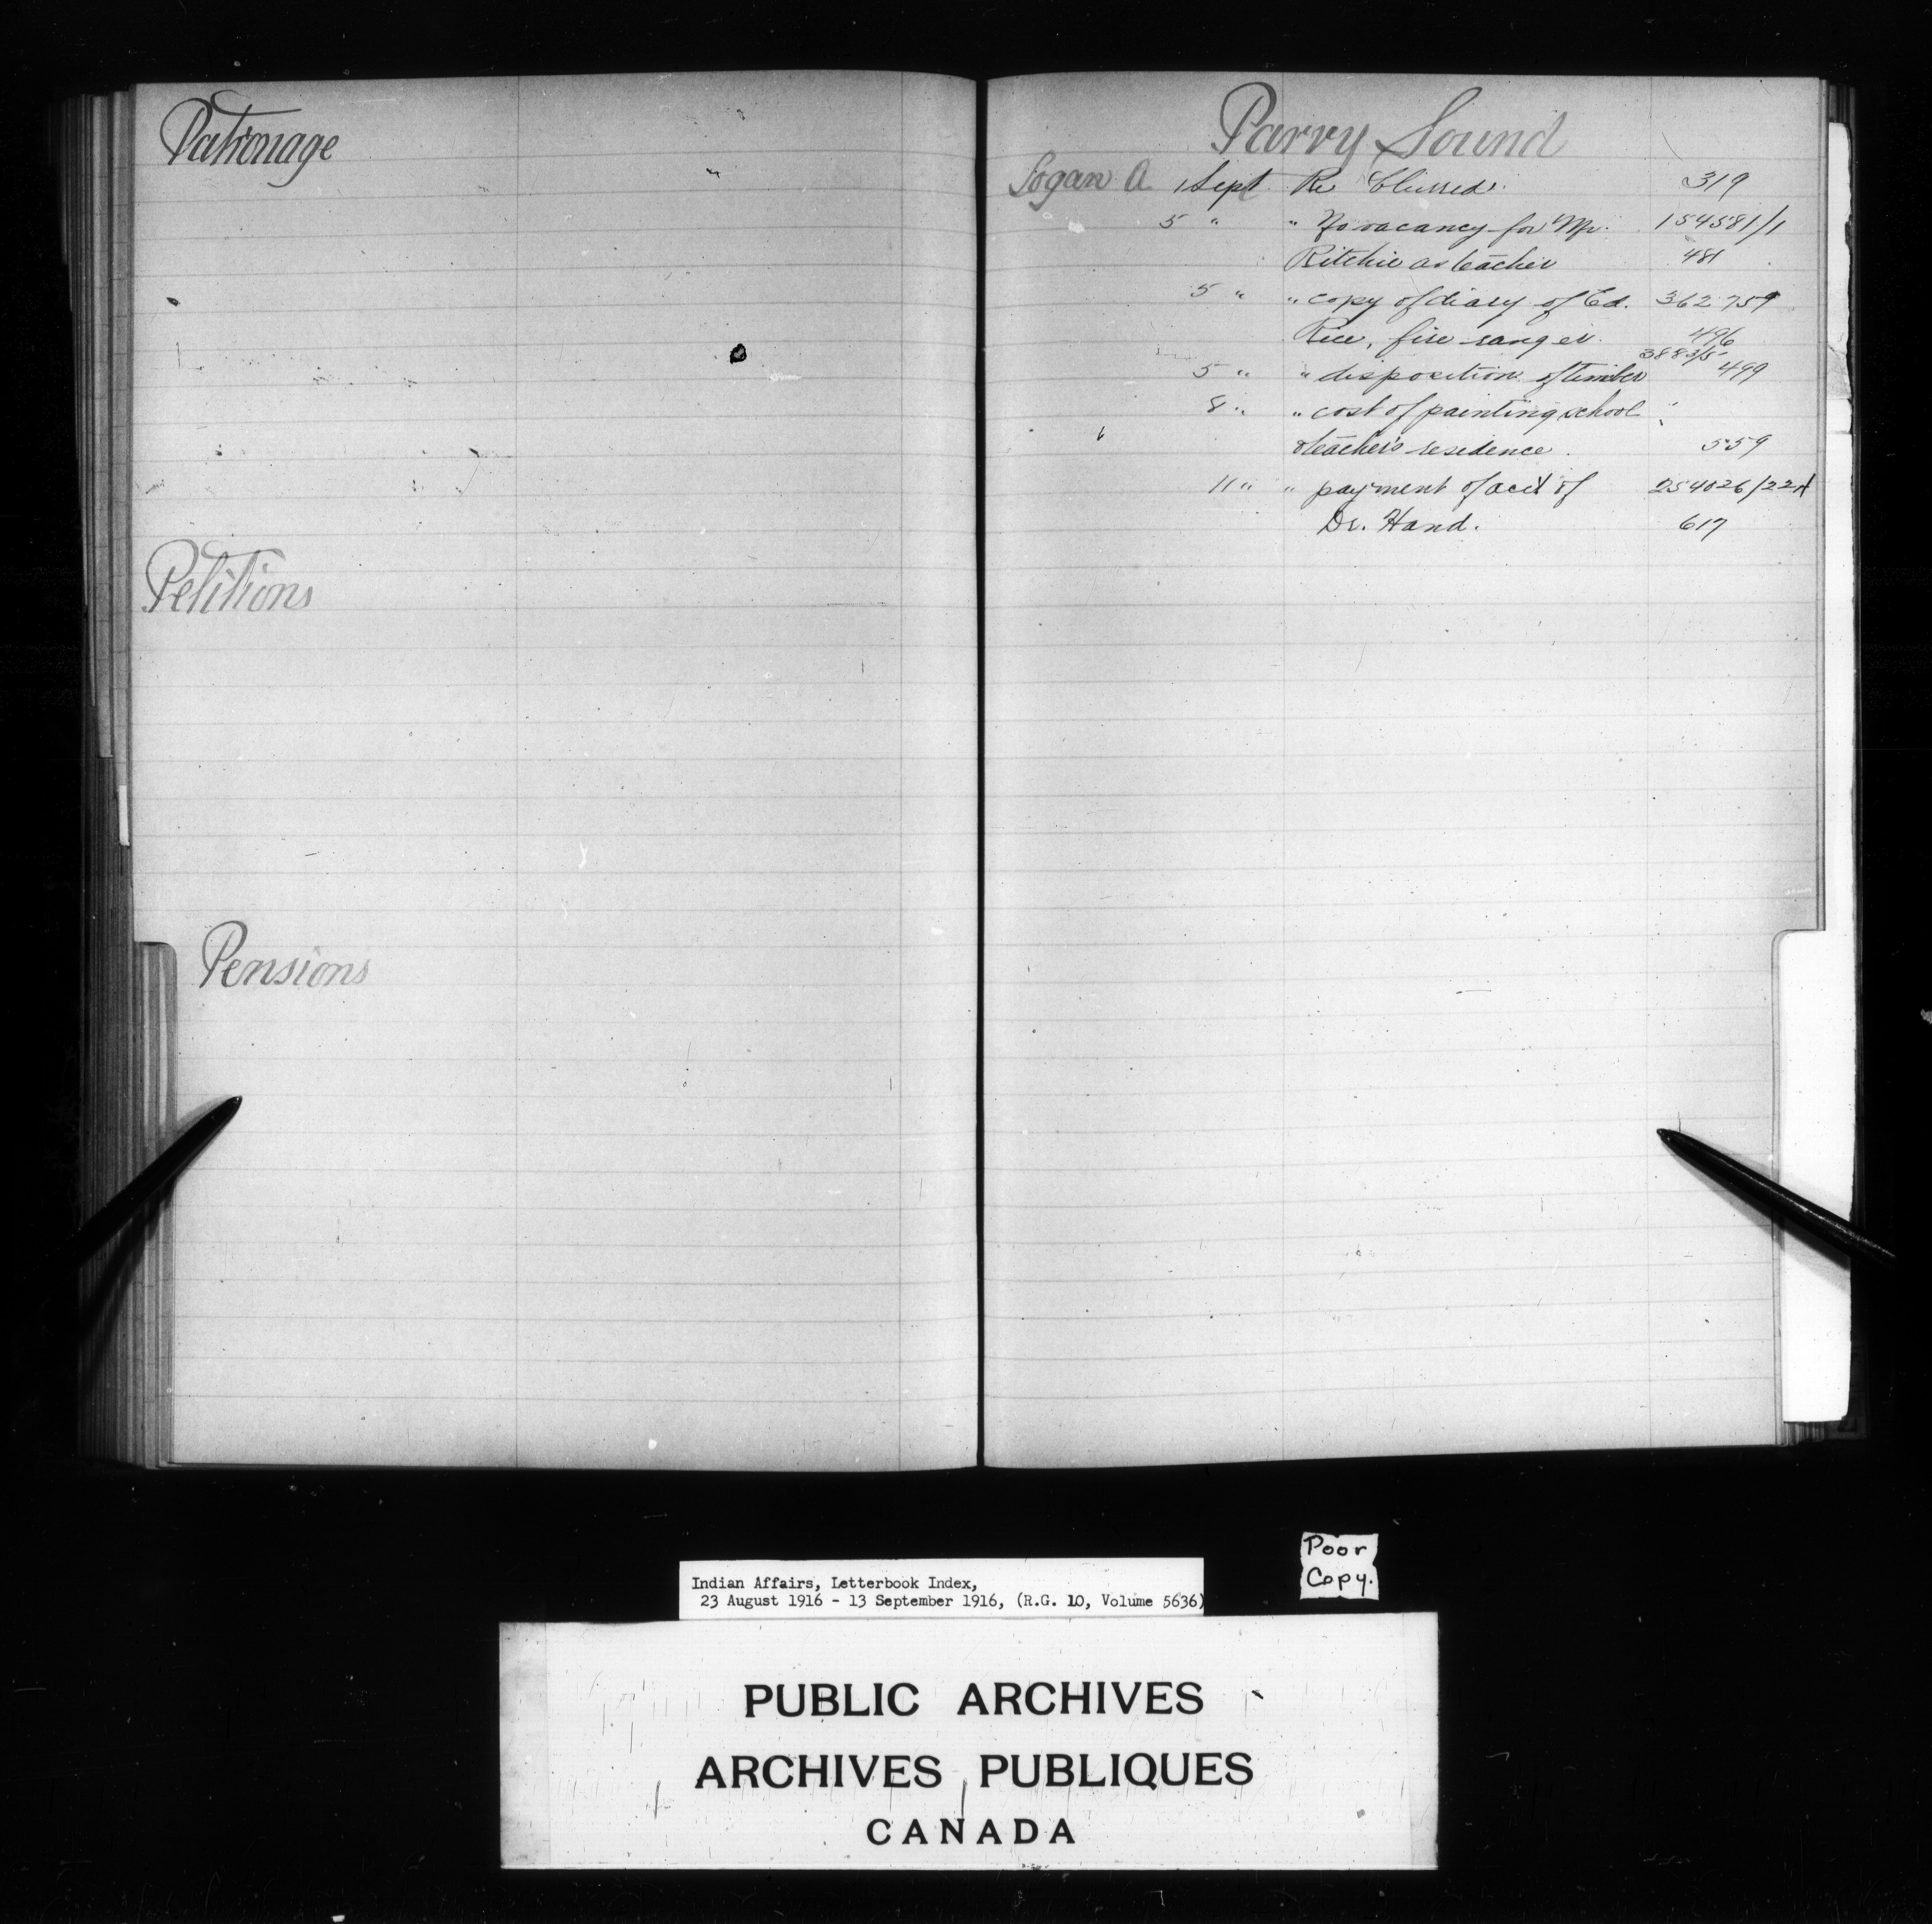 Patronage
Petitions
Pensions
Parry Sound
Logan A. 1 Sept. Re Blurred. 319
5 " " No vacancy for Mr. 154581/1
Ritchie as teacher 481
5 " " copy of diary of Ed. 362759
Rice, fire ranger. 496
5 " " disposition of timber 499
8 " " cost of painting school
teacher's residence. 559
11 " " payment of acct of 254026/22A
Dr. Hand. 617
Poor
Copy.
Indian Affairs, Letterbook Index,
23 August 1916 - 13 September 1916, (R.G. 10, Volume 5636)
PUBLIC ARCHIVES
ARCHIVES PUBLIQUES
CANADA